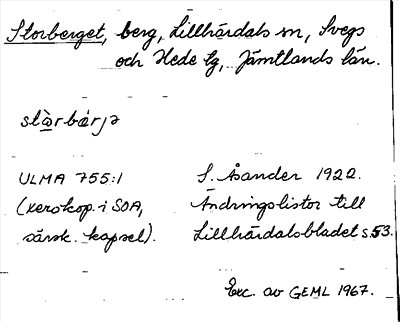 Storberget, berg, Lillhärdals sn, Svegs
och Hede tg, Jämtlands län.
stòrbǽrjə
ULMA 755:1 S. Åsander 1922.
(xerokop. i SOA, Ändringslistor till
särsk. kapsel). Lillhärdalsbladet s. 53.
Exc. av GEML 1967.